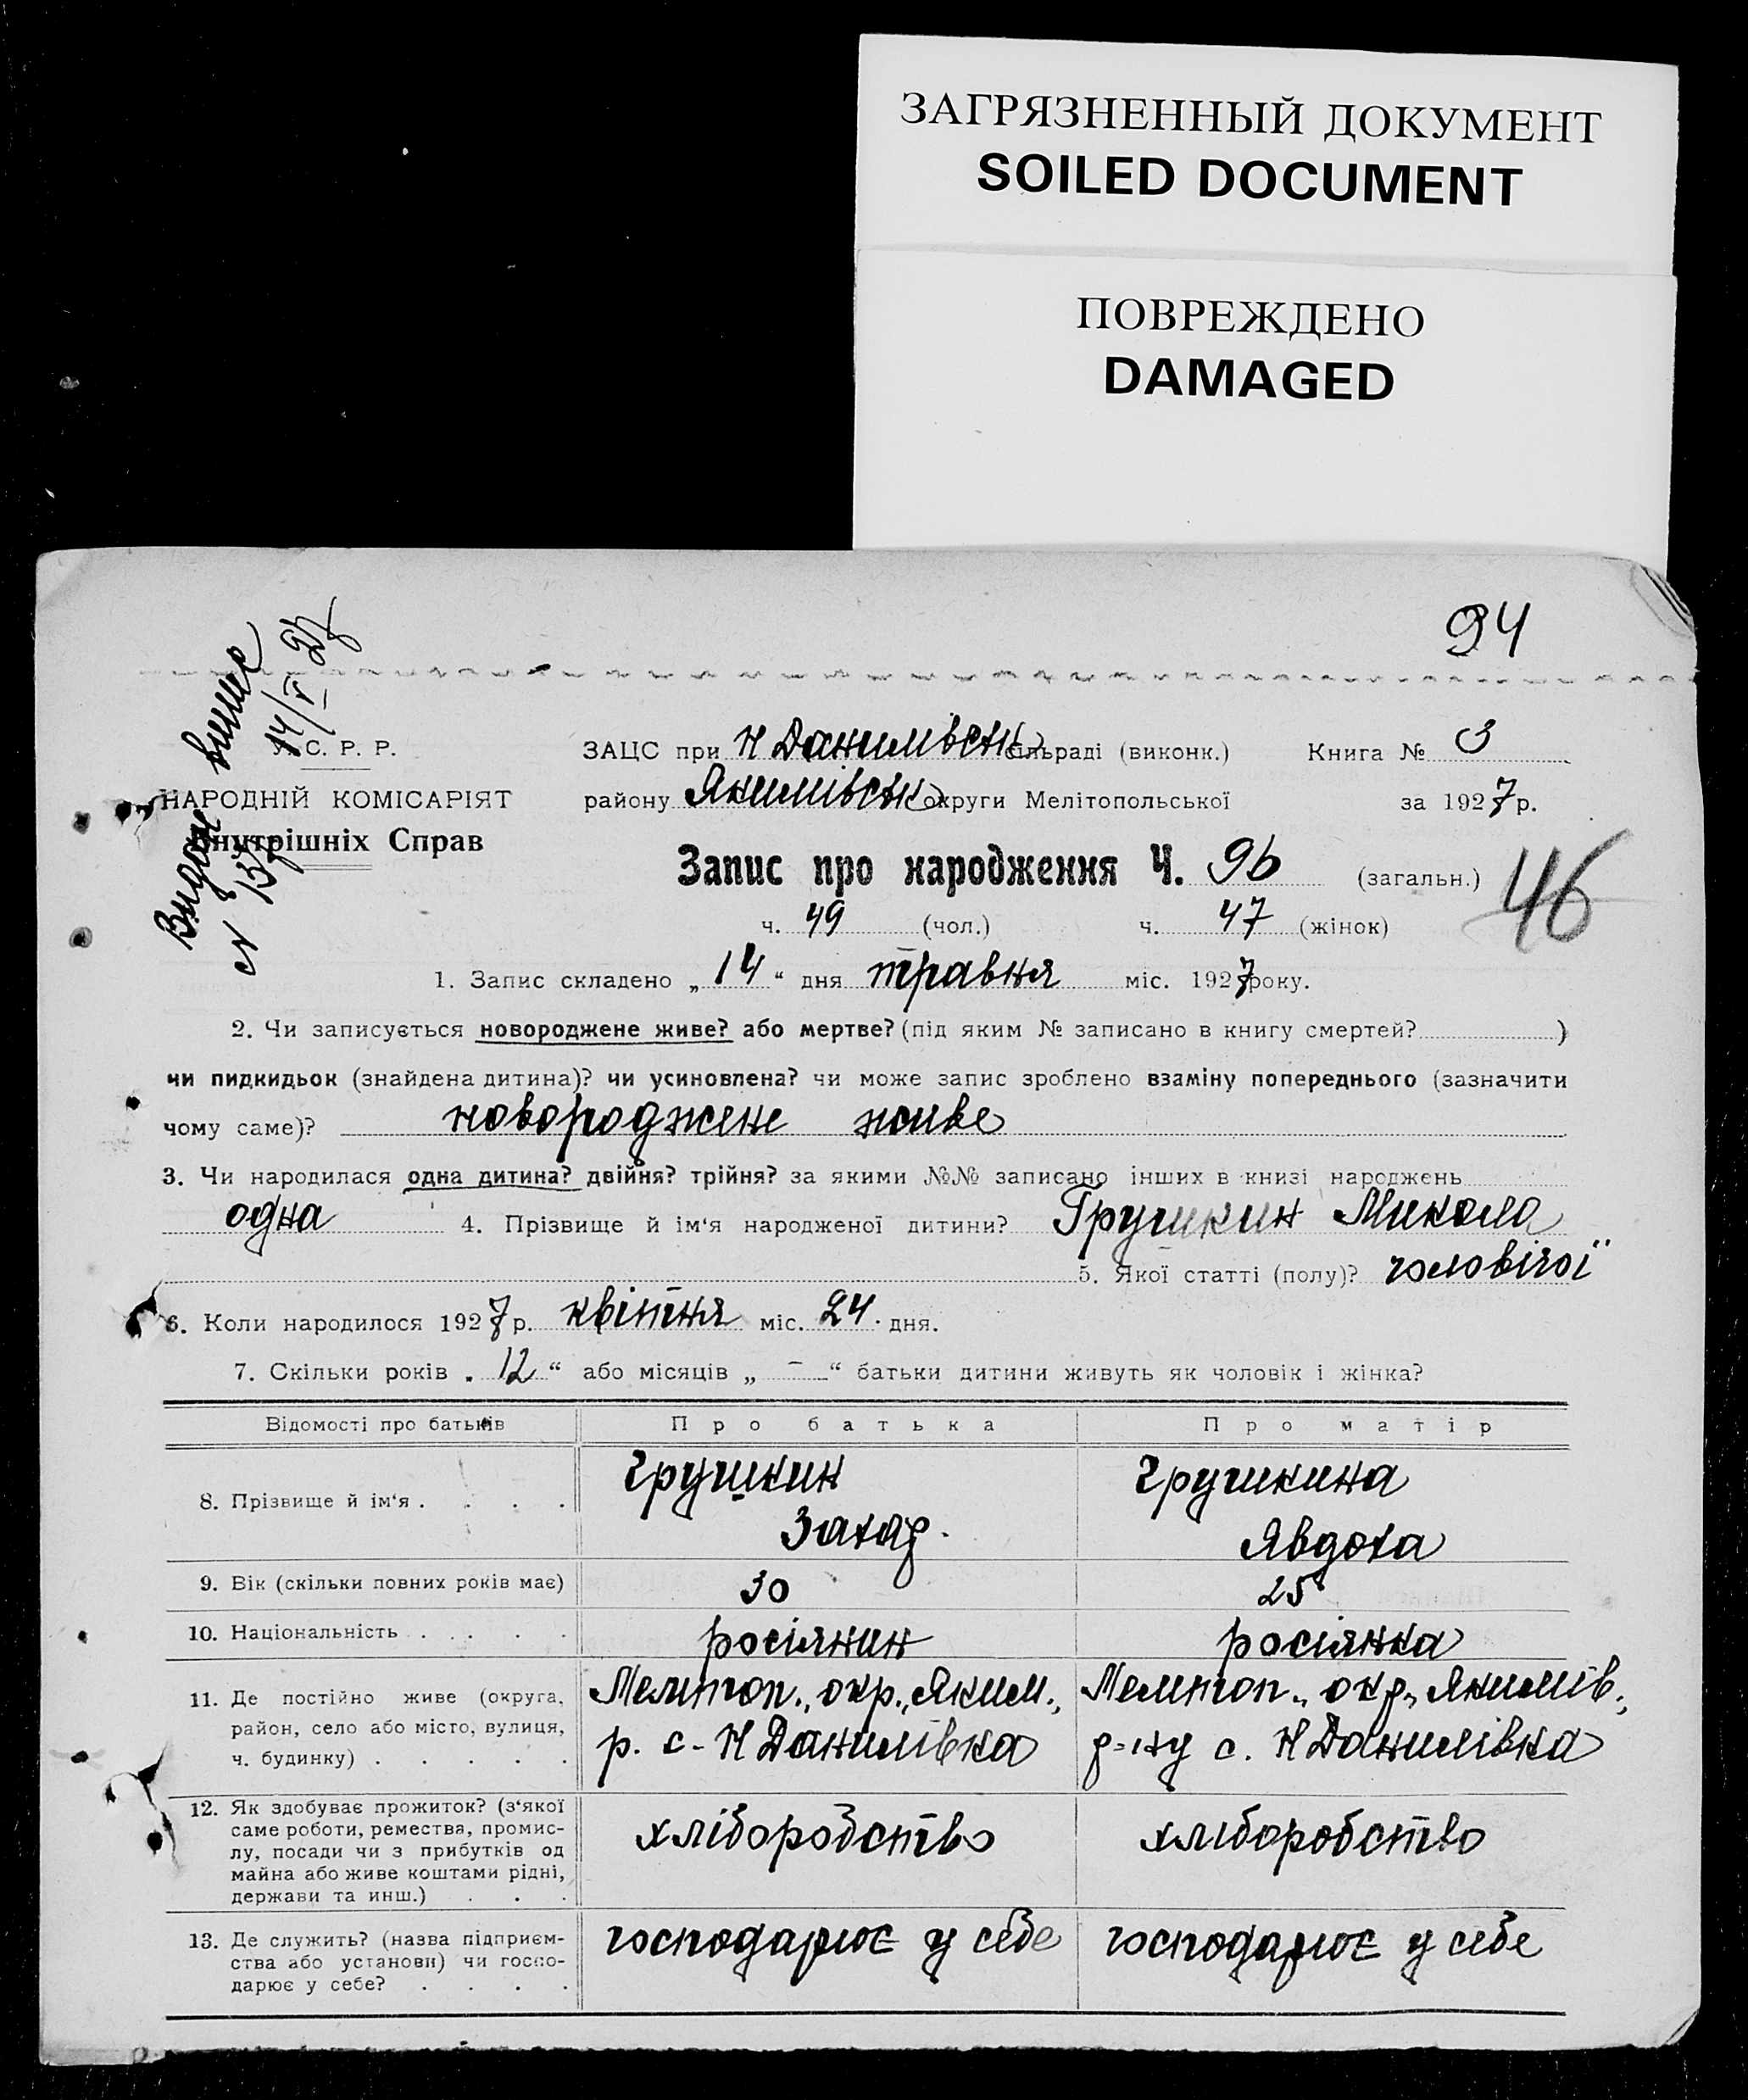 ЗАГРЯЗНЕННЫЙ ДОКУМЕНТ
SOILED DOCUMENT
ПОВРЕЖДЕНО
DAMAGED
94
Видан
14/V 27
У. С. Р. Р.
НАРОДНІЙ КОМІСАРІЯТ
Внутрішніх Справ
ЗАЦС при Н Данилівськ сільраді (виконк.) Книга № 3
району Якимівськ округи Мелітопольської за 1927 р.
Запис про народження Ч. 96 (загальн.) 46
ч. 49 (чол.) ч. 47 (жінок)
1. Запис складено „ 14 “ дня травня міс. 1927 року.
2. Чи записується новороджене живе? або мертве? (під яким № записано в книгу смертей? )
чи пидкидьок (знайдена дитина)? чи усиновлена? чи може запис зроблено взаміну попереднього (зазначити
чому саме)? новороджене живе
3. Чи народилася одна дитина? двійня? трійня? за якими №№ записано інших в книзі народжень
одна 4. Прізвище й ім'я народженої дитини? Грушкин Микола
5. Якої статті (полу)? чоловічої
6. Коли народилося 1927 р. квітня міс. 24 дня.
7. Скільки років „ 12 “ або місяців „ – “ батьки дитини живуть як чоловік і жінка?
Відомості про батьків Про батька Про матір
8. Прізвище й ім'я . . . . Грушкин Захар. Грушкина Явдоха
9. Вік (скільки повних років має) 30 25
10. Національність . . . . . росіянин росіянка
11. Де постійно живе (округа, Мелітоп., окр., Яким., Мелітоп., окр., Якимів.,
район, село або місто, вулиця, р. с - Н Данилівка р-ну с. Н Данилівка
ч. будинку) . . . . .
12. Як здобуває прожиток? (з'якої
саме роботи, ремества, промис- хліборобство хліборобство
лу, посади чи з прибутків од
майна або живе коштами рідні,
держави та инш.) . . .
13. Де служить? (назва підприєм- господарює у себе господарює у себе
ства або установи) чи госпо-
дарює у себе? . . . .